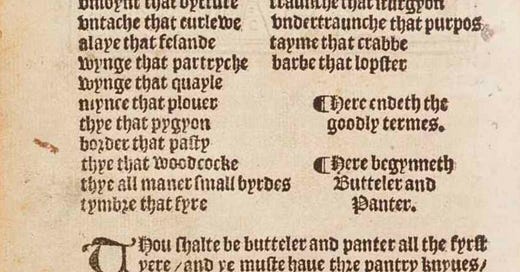 vnioynt that bytture
vntache that curlewe
alaye that feſande
wynge that partryche
wynge that quayle
mynce that plouer
thye that pygyon
border that paſty
thye that woodcocke
thye all maner ſmall byrdes
tymbre that fyre
traunche that ſturgyon
vndertraunche that purpos
tayme that crabbe
barbe that lopſter
¶Here endeth the
goodly termes.
¶Here begynneth
Butteler and
Panter.
THou ſhalte be butteler and panter all the fyrſt
yere/and ye muſte haue thre pantry knyues/